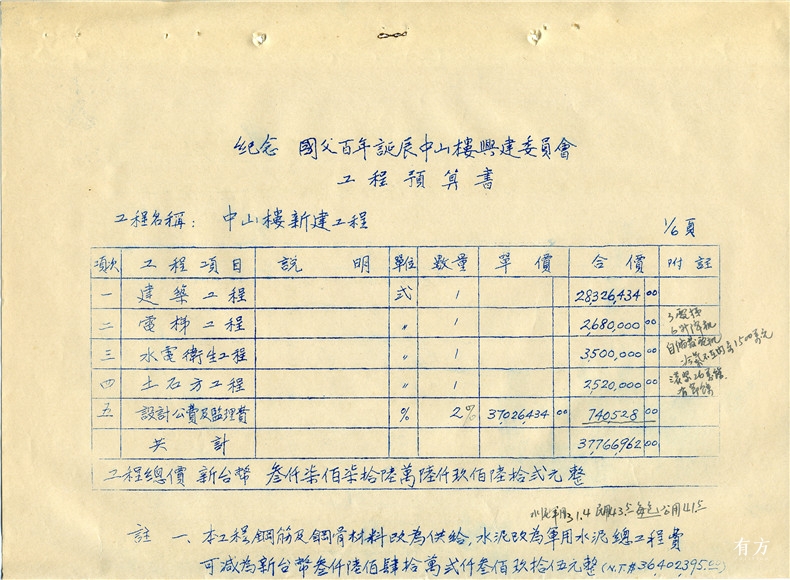 紀念 國父百年誕辰中山樓興建委員會
工程預算書
工程名稱： 中山樓新建工程
1/6頁
項次 工程項目 說明 單位 數量 單價 合價 附註
一 建築工程 式 1 28,326,434 00
二 電梯工程 〃 1 2,680,000 00
三 水電衛生工程 〃 1 3,500,000 00
四 土石方工程 〃 1 2,520,000 00
五 設計公費及監理費 % 2% 37,026,434 00 740,528 00
共計 37,766,962 00
3電梯
6升降機
工程總價 新台幣 叁仟柒佰柒拾陸萬陸仟玖佰陸拾弍元整
註 一、本工程鋼筋及鋼骨材料改為供給，水泥改為軍用水泥總工程費
可减為新台幣叁仟陸佰肆拾萬弍仟叁佰玖拾伍元整(N.T.#36402395.00)
有方